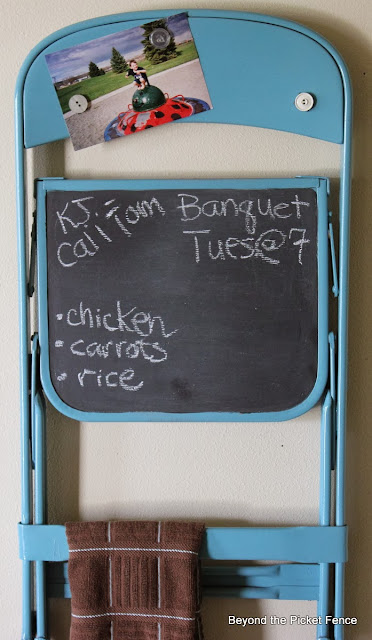 KJ -
call Tom
Banquet
Tues@7
• chicken
• carrots
• rice
Beyond the Picket Fence